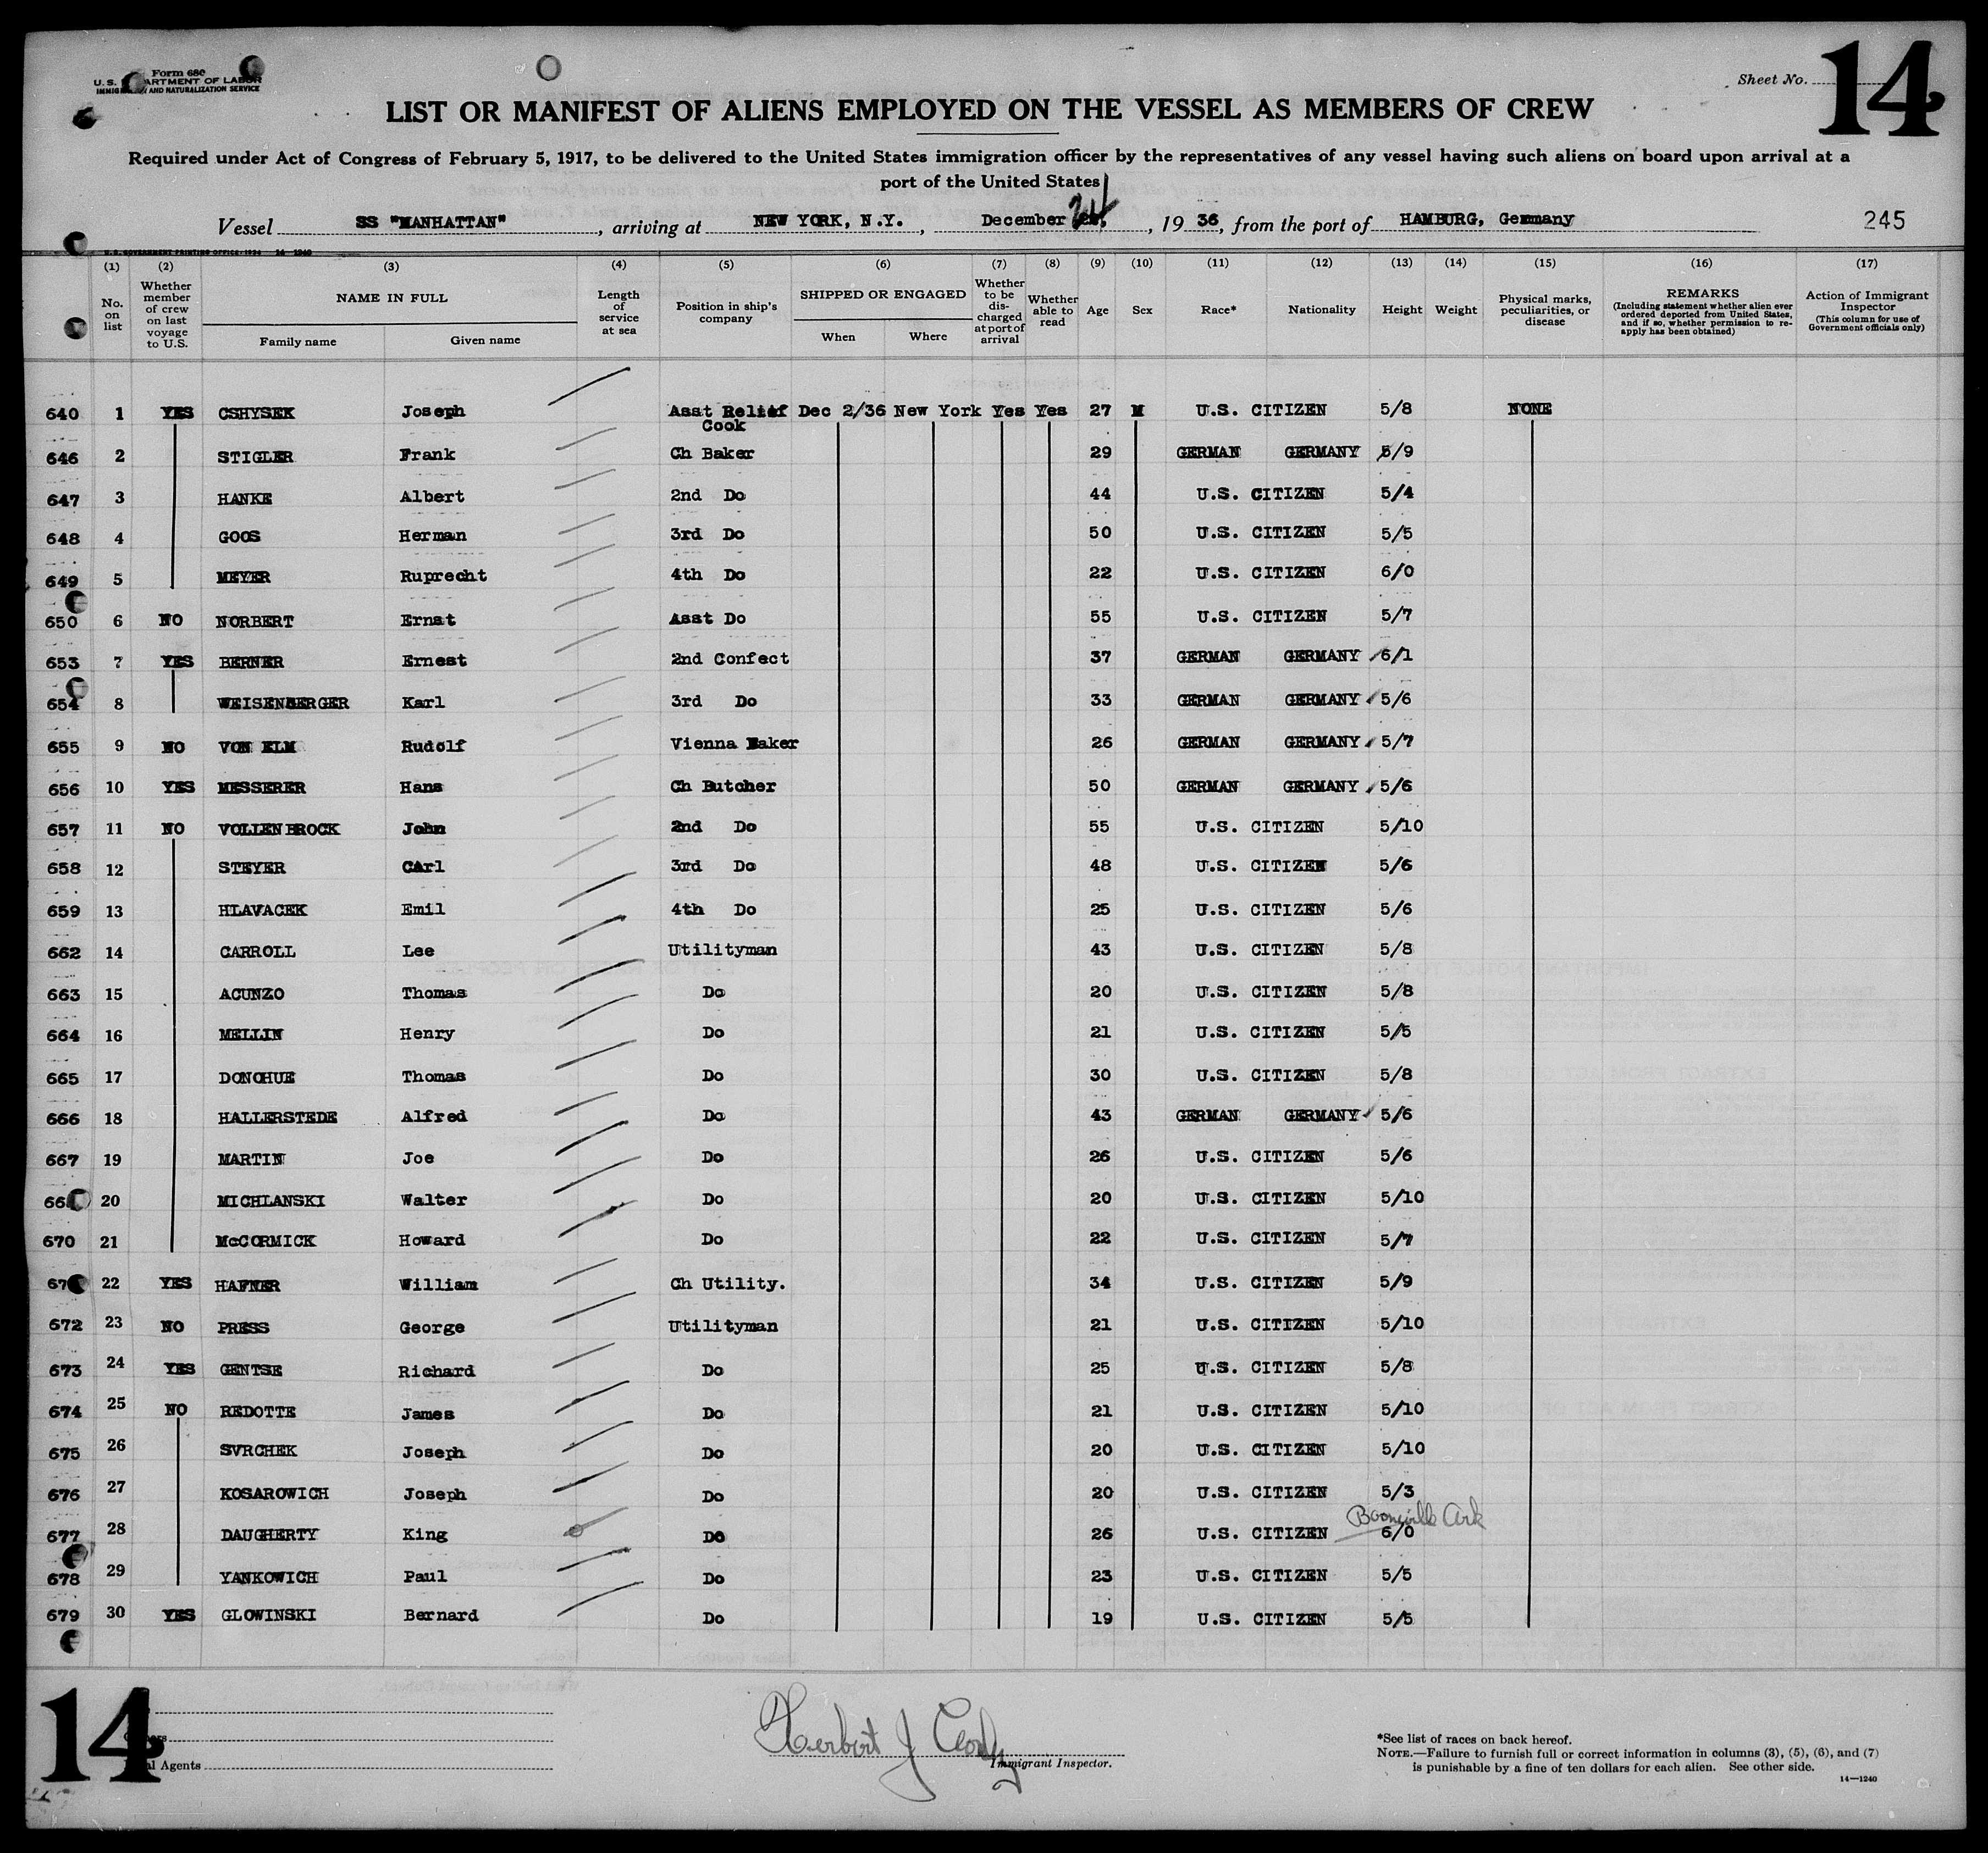 Form 680
U. S. DEPARTMENT OF LABOR
IMMIGRATION AND NATURALIZATION SERVICE
Sheet No. 14
LIST OR MANIFEST OF ALIENS EMPLOYED ON THE VESSEL AS MEMBERS OF CREW
Required under Act of Congress of February 5, 1917, to be delivered to the United States immigration officer by the representatives of any vessel having such aliens on board upon arrival at a
port of the United States
Vessel SS "MANHATTAN", arriving at NEW YORK, N.Y., December 24, 1936, from the port of HAMBURG, Germany 245
U.S. GOVERNMENT PRINTING OFFICE: 1934 14-1240
(1) (2) (3) (4) (5) (6) (7) (8) (9) (10) (11) (12) (13) (14) (15) (16) (17)
No. on list
Whether member of crew on last voyage to U.S.
NAME IN FULL
Family name Given name
Length of service at sea
Position in ship's company
SHIPPED OR ENGAGED
When Where
Whether to be discharged at port of arrival
Whether able to read
Age Sex Race* Nationality Height Weight
Physical marks, peculiarities, or disease
REMARKS
(Including statement whether alien ever ordered deported from United States, and if so, whether permission to re-apply has been obtained)
Action of Immigrant Inspector
(This column for use of Government officials only)
640 1 YES CSHYSEK Joseph Asst Relief Cook Dec 2/36 New York Yes Yes 27 M U.S. CITIZEN 5/8 NONE
646 2 STIGLER Frank Ch Baker 29 GERMAN GERMANY 5/9
647 3 HANKE Albert 2nd Do 44 U.S. CITIZEN 5/4
648 4 GOOS Herman 3rd Do 50 U.S. CITIZEN 5/5
649 5 MEYER Ruprecht 4th Do 22 U.S. CITIZEN 6/0
650 6 NO NORBERT Ernst Asst Do 55 U.S. CITIZEN 5/7
653 7 YES BERNER Ernest 2nd Confect 37 GERMAN GERMANY 6/1
654 8 WEISENBERGER Karl 3rd Do 33 GERMAN GERMANY 5/6
655 9 NO VON ELM Rudolf Vienna Baker 26 GERMAN GERMANY 5/7
656 10 YES MESSERER Hans Ch Butcher 50 GERMAN GERMANY 5/6
657 11 NO VOLLENBROCK John 2nd Do 55 U.S. CITIZEN 5/10
658 12 STEYER CArl 3rd Do 48 U.S. CITIZEN 5/6
659 13 HLAVACEK Emil 4th Do 25 U.S. CITIZEN 5/6
662 14 CARROLL Lee Utilityman 43 U.S. CITIZEN 5/8
663 15 ACUNZO Thomas Do 20 U.S. CITIZEN 5/8
664 16 MELLIN Henry Do 21 U.S. CITIZEN 5/5
665 17 DONOHUE Thomas Do 30 U.S. CITIZEN 5/8
666 18 HALLERSTEDE Alfred Do 43 GERMAN GERMANY 5/6
667 19 MARTIN Joe Do 26 U.S. CITIZEN 5/6
20 MICHLANSKI Walter Do 20 U.S. CITIZEN 5/10
670 21 McCORMICK Howard Do 22 U.S. CITIZEN 5/7
22 YES HAFNER William Ch Utility. 34 U.S. CITIZEN 5/9
672 23 NO PRESS George Utilityman 21 U.S. CITIZEN 5/10
673 24 YES GENTSE Richard Do 25 U.S. CITIZEN 5/8
674 25 NO REDOTTE James Do 21 U.S. CITIZEN 5/10
675 26 SVRCHEK Joseph Do 20 U.S. CITIZEN 5/10
676 27 KOSAROWICH Joseph Do 20 U.S. CITIZEN 5/3
Booneville Ark
677 28 DAUGHERTY King Do 26 U.S. CITIZEN 6/0
678 29 YANKOWICH Paul Do 23 U.S. CITIZEN 5/5
679 30 YES GLOWINSKI Bernard Do 19 U.S. CITIZEN 5/5
14
Agents
Herbert J
Immigrant Inspector.
*See list of races on back hereof.
NOTE.—Failure to furnish full or correct information in columns (3), (5), (6), and (7)
is punishable by a fine of ten dollars for each alien. See other side.
14—1240